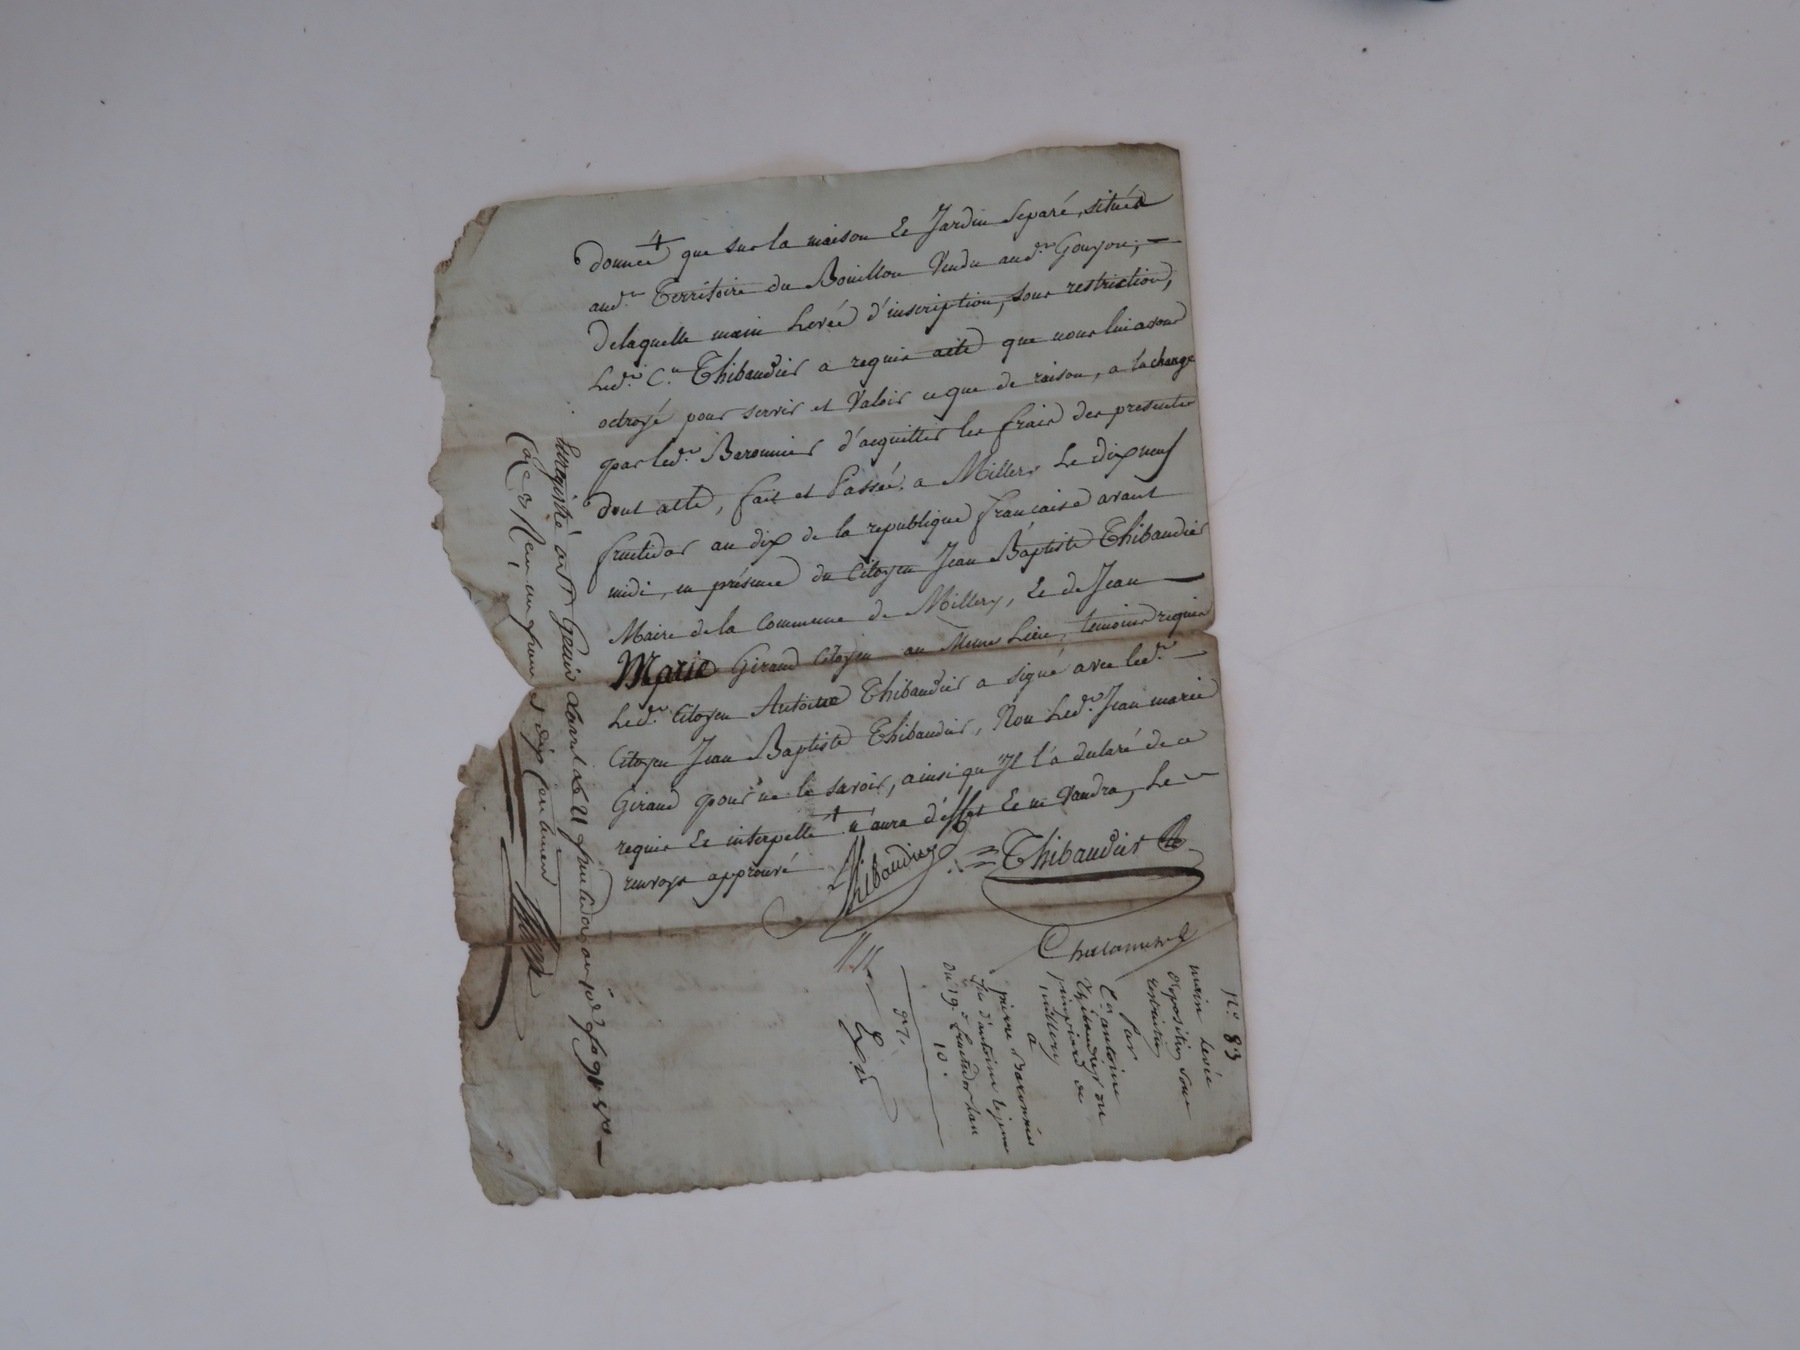 donnée que sur la maison Et Jardin Separé, située
aud.t Territoire du Bouillon Vendu aud.t Gouyon;
de laquelle main Levée d'inscription, sous restriction,
Led.t C.n Thibaudier a requis acte que nous lui avons
octroyé pour servir et Valoir ce que de raison, a la charge
par led.t Baronnier d'acquitter les frais des presentes
dont acte, fait et Passé, a Millery Le dix neuf
fructidor an dix de la republique francaise avant
midi, en présence du Citoyen Jean Baptiste Thibaudier
Maire de la Commune de Millery, Et de Jean
Marie Giraud Citoyen au Meme Lieu, temoins requis
Led.t Citoyen Antoine Thibaudier a signé avec led.t
Citoyen Jean Baptiste Thibaudier, Non Led.t Jean marie
Giraud pour ne le savoir, ainsi qu'Il l'a declaré de ce
requis Et interpellé n'aura d'effet Et ne Vaudra, Le
renvoy approuvé
Thibaudier Thibaudier
Enregistré a St Genis Laval Le 21 fructidor an 10
un franc dix centimes
N.o 83
main Levée
opposition sous
restriction
Par
C.n antoine
Thibaudier
Millery
à
pierre Baronnier
fils d'antoine
Du 19 fructidor l'an
10.